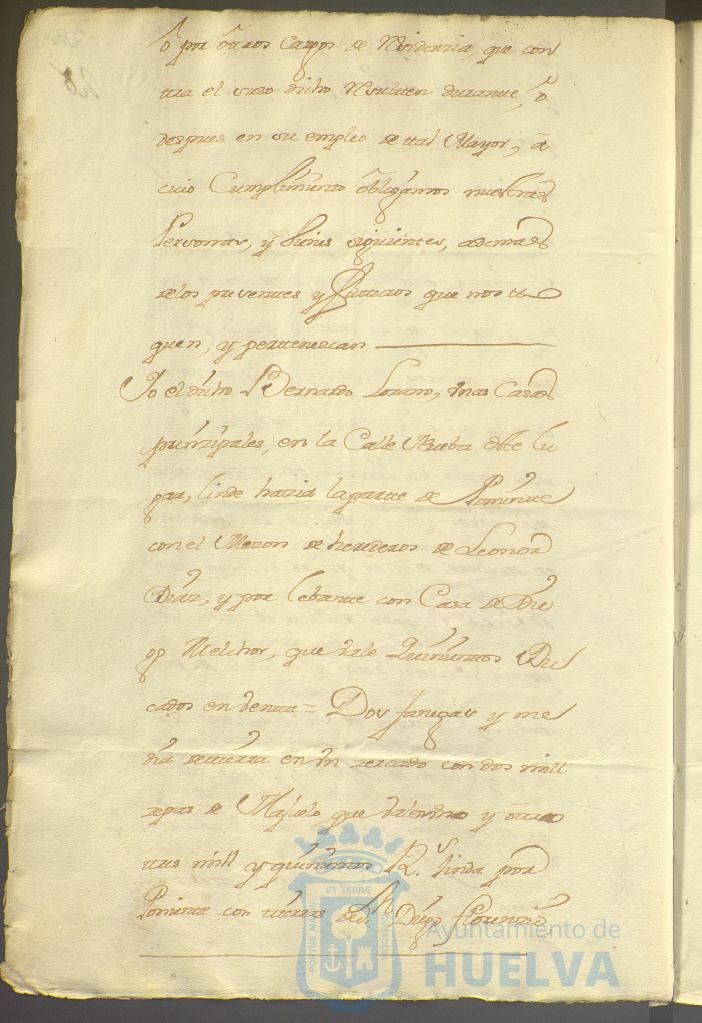 ò por otros Cargos de Residencia, que con
tra el suso dicho Resulten durante, ò
despues en su empleo de tal Mayor, à
cuio Cumplimiento obligamos nuestras
Personas, y bienes siguientes, ademas
delos presentes y futuros que nos to
quen, y pertenezcan
Yo el dicho Bernardo Lozano, Unas Casas
prinzipales, en la Calle este lu
gar, linde hazia la parte de Poniente
con el Meson de herederos de Leonor
Diaz, y por lebante con Casa de Die
go Melchor, que Vale Quinientos Du
cados en Venta = Dos fanegas y me
dia de tierra en Un zercado con dos mill
zepas de Majuelo que y
tos mill y quinientos R.s linda por
Poniente con tierras de Dn Diego Florenzio
ET TERRÆ
PORTUS MARIS
CUSTODIA
Ayuntamiento de
HUELVA